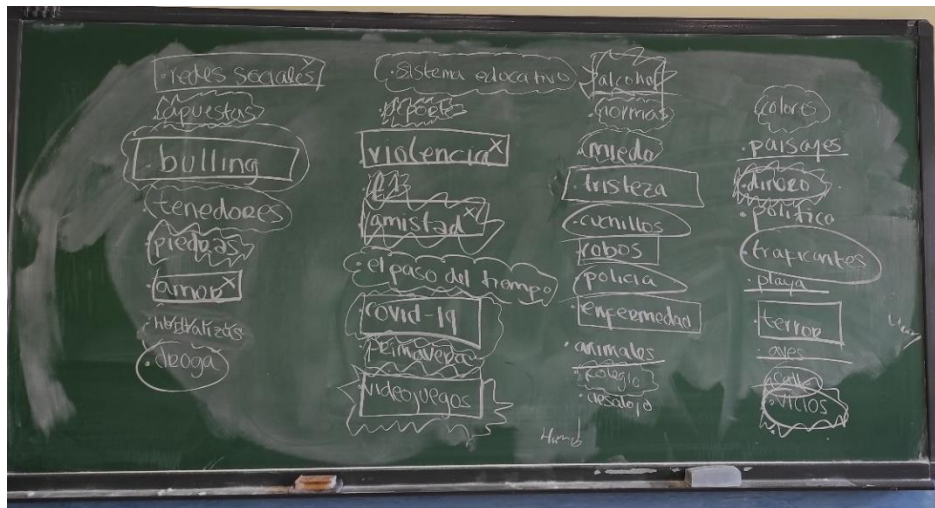 ·redes sociales x
apuestas
·bulling
·tenedores
·piedras
·amor x
·droga
·sistema educativo
·deporte
·violencia x
·amistad x
·el paso del tiempo
·covid-19
primavera
videojuegos
·alcohol
·normas
·miedo
·tristeza
·cuchillos
robos
·policía
·enfermedad
·animales
·colegio
·desalojo
·colores
·paisajes
·dinero
·político
·traficantes
·playa
·terror
aves
·vicios